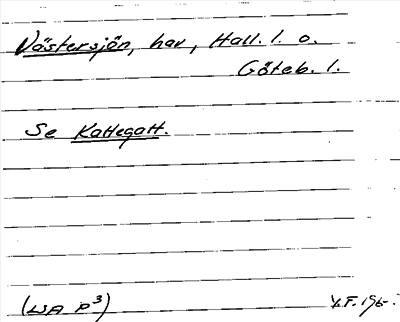 Västersjön, hav, Hall. l. o.
Göteb. l.
Se Kattegatt.
(WA P³)
V.F. 1965.